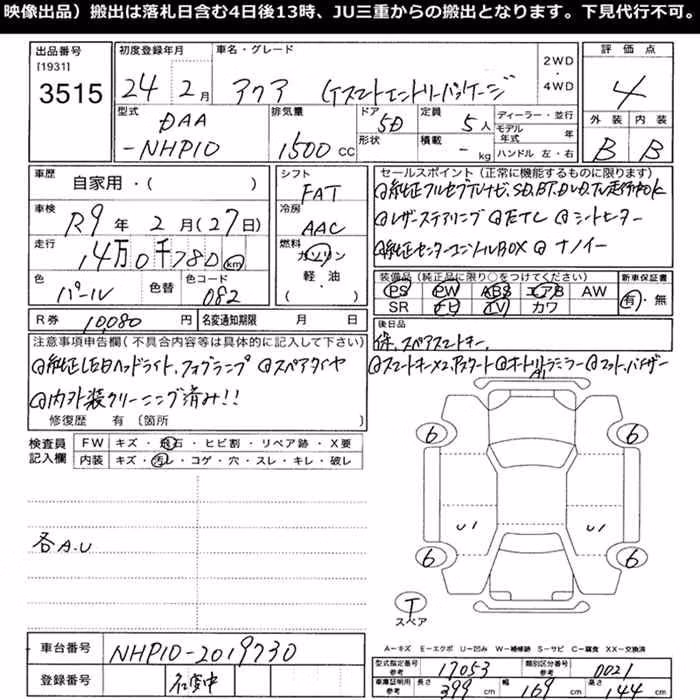 映像出品）搬出は落札日含む4日後13時、JU三重からの搬出となります。下見代行不可。
出品番号
[1931]
3515
初度登録年月
24 年 2月
車名・グレード
アクア Lスマートエントリーパッケージ
2WD
・
4WD
評価点
4
型式
DAA
-NHP10
排気量
1500 CC
ドア
5D
形状
定員
5人
積載
- kg
ディーラー・並行
モデル年式 年
ハンドル 左・右
外装 内装
B B
車歴
自家用・( )
シフト
FAT
車検
R9年2月(27日)
冷房
AAC
走行
14万0千780 km
燃料
ガソリン
軽・油
( )
色
パール
色替
色コード
082
R券 10080 円
名変通知期限 月 日
セールスポイント（正常に機能するものに限ります）
@純正フルセグTVナビ、SD,BT,DVD,TV走行中OK
@レザーステアリング @ETC @シートヒーター
@純正センターコンソールBOX @ナノイー
装備品（純正品に限り○をつけてください）
PS PW ABS エアB AW
SR ナビ TV カワ
新車保証書
有・無
後日品
保、スペアスマートキー、
注意事項申告欄（不具合内容等は具体的に記入して下さい）
@純正LEDヘッドライト、フォグランプ @スペアタイヤ
@内外装クリーニング済み!!
@スマートキー×2,Pスタート @オートリトラミラー @マット、バイザー
修復歴 有 〔箇所 〕
検査員
記入欄
FW キズ・飛石・ヒビ割・リペア跡・X要
内装 キズ・汚レ・コゲ・穴・スレ・キレ・破レ
各A.U
6 6
U1 U1
6 6
T
スペア
車台番号 NHP10-2019730
登録番号
A－キズ E－エクボ U－凹み W－補修跡 S－サビ C－腐食 XX－交換済
型式指定番号
参考
17053
類別区分番号
参考
0021
車庫証明用
参考
長さ 399 cm 幅 169 cm 高さ 144 cm